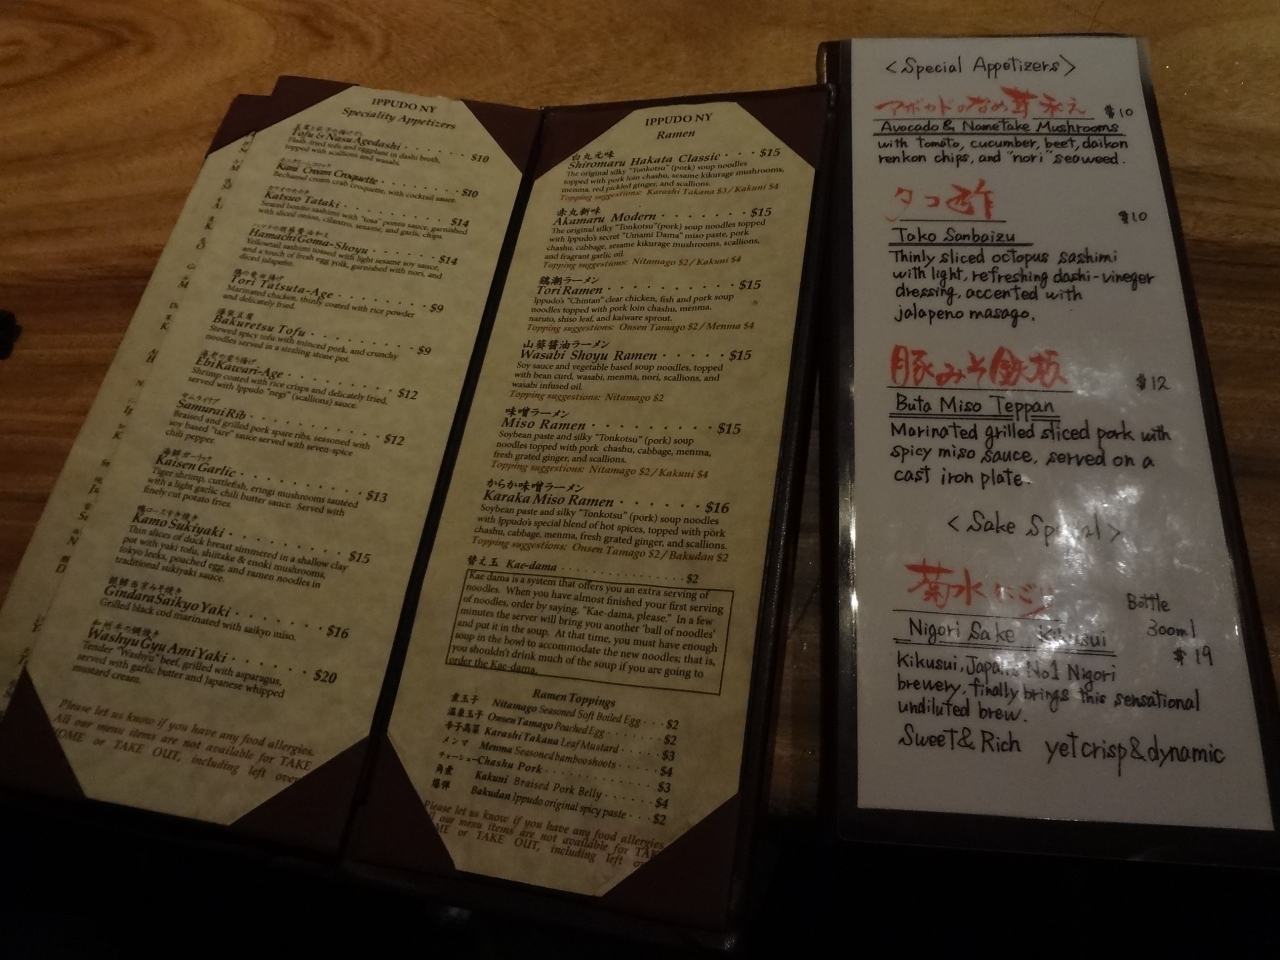 IPPUDO NY
Speciality Appetizers
Tofu & Nasu Agedashi $10
topped with scallions and wasabi.
Kani Cream Croquette $10
Bechamel cream crab croquette, with cocktail sauce.
Katsuo Tataki $14
Seared bonito sashimi with "tosa" ponzu sauce, garnished
with sliced onion, cilantro, sesame, and garlic chips.
Hamachi Goma-Shoyu $14
Yellowtail sashimi tossed with light sesame soy sauce,
and a touch of fresh egg yolk, garnished with nori, and
diced jalapeño.
Tori Tatsuta-Age $9
Marinated chicken, thinly coated with rice powder
and delicately fried.
Bakuretsu Tofu $9
Stewed spicy tofu with minced pork, and crunchy
noodles served in a sizzling stone pot.
Ebi Kawari-Age $12
Shrimp coated with rice crisps and delicately fried,
served with Ippudo "negi" (scallions) sauce.
Samurai Rib $12
Braised and grilled pork spare ribs, seasoned with
soy based "tare" sauce served with seven-spice
chili pepper.
Kaisen Garlic $13
Tiger shrimp, cuttlefish, eringi mushrooms sautéed
with a light garlic chili butter sauce. Served with
finely cut potato fries.
Kamo Sukiyaki $15
Thin slices of duck breast simmered in a shallow clay
pot with yaki tofu, shiitake & enoki mushrooms,
tokyo leeks, poached egg, and ramen noodles in
traditional sukiyaki sauce.
Gindara Saikyo Yaki $16
Grilled black cod marinated with saikyo miso.
Washyu Gyu Ami Yaki $20
Tender "Washyu" beef, grilled with asparagus,
served with garlic butter and Japanese whipped
mustard cream.
Please let us know if you have any food allergies.
All our menu items are not available for TAKE
HOME or TAKE OUT, including left over
IPPUDO NY
Ramen
白丸元味
Shiromaru Hakata Classic $15
The original silky "Tonkotsu"(pork) soup noodles
topped with pork loin chashu, sesame kikurage mushrooms,
menma, red pickled ginger, and scallions.
Topping suggestions: Karashi Takana $3 / Kakuni $4
赤丸新味
Akamaru Modern $15
The original silky "Tonkotsu"(pork) soup noodles topped
with Ippudo's secret "Umami Dama" miso paste, pork
chashu, cabbage, sesame kikurage mushrooms, scallions,
and fragrant garlic oil.
Topping suggestions: Nitamago $2 / Kakuni $4
鶏潮ラーメン
Tori Ramen $15
Ippudo's "Chintan" clear chicken, fish and pork soup
noodles topped with pork loin chashu, menma,
naruto, shiso leaf, and kaiware sprout.
Topping suggestions: Onsen Tamago $2 / Menma $4
山葵醤油ラーメン
Wasabi Shoyu Ramen $15
Soy sauce and vegetable based soup noodles, topped
with bean curd, wasabi, menma, nori, scallions, and
wasabi infused oil.
Topping suggestions: Nitamago $2
味噌ラーメン
Miso Ramen $15
Soybean paste and silky "Tonkotsu" (pork) soup
noodles topped with pork chashu, cabbage, menma,
fresh grated ginger, and scallions.
Topping suggestions: Nitamago $2 / Kakuni $4
からか味噌ラーメン
Karaka Miso Ramen $16
Soybean paste and silky "Tonkotsu" (pork) soup noodles
with Ippudo's special blend of hot spices, topped with pork
chashu, cabbage, menma, fresh grated ginger, and scallions.
Topping suggestions: Onsen Tamago $2 / Bakudan $2
替え玉 Kae-dama $2
Kae dama is a system that offers you an extra serving of
noodles. When you have almost finished your first serving
of noodles, order by saying, "Kae-dama, please." In a few
minutes the server will bring you another 'ball of noodles'
and put it in the soup. At that time, you must have enough
soup in the bowl to accommodate the new noodles; that is,
you shouldn't drink much of the soup if you are going to
order the Kae-dama.
Ramen Toppings
煮玉子 Nitamago Seasoned Soft Boiled Egg $2
温泉玉子 Onsen Tamago Poached Egg $2
辛子高菜 Karashi Takana Leaf Mustard $3
メンマ Menma Seasoned bamboo shoots $4
チャーシュー Chashu Pork $3
角煮 Kakuni Braised Pork Belly $4
爆弾 Bakudan Ippudo original spicy paste $2
Please let us know if you have any food allergies.
our menu items are not available for
HOME or TAKE OUT, including left
<Special Appetizers>
アボカドのなめ茸和え $10
Avocado & Nametake Mushrooms
with tomato, cucumber, beet, daikon
renkon chips, and "nori" seaweed.
タコ酢 $10
Tako Sanbaizu
Thinly sliced octopus sashimi
with light, refreshing dashi-vineger
dressing, accented with
jalapeno masago.
豚みそ鉄板 $12
Buta Miso Teppan
Marinated grilled sliced pork with
spicy miso sauce, served on a
cast iron plate.
<Sake Special>
菊水にごり
Bottle
300ml
$19
Nigori Sake Kikusui
Kikusui, Japan's No1 Nigori
brewery, finally brings this sensational
undiluted brew.
Sweet & Rich yet crisp & dynamic